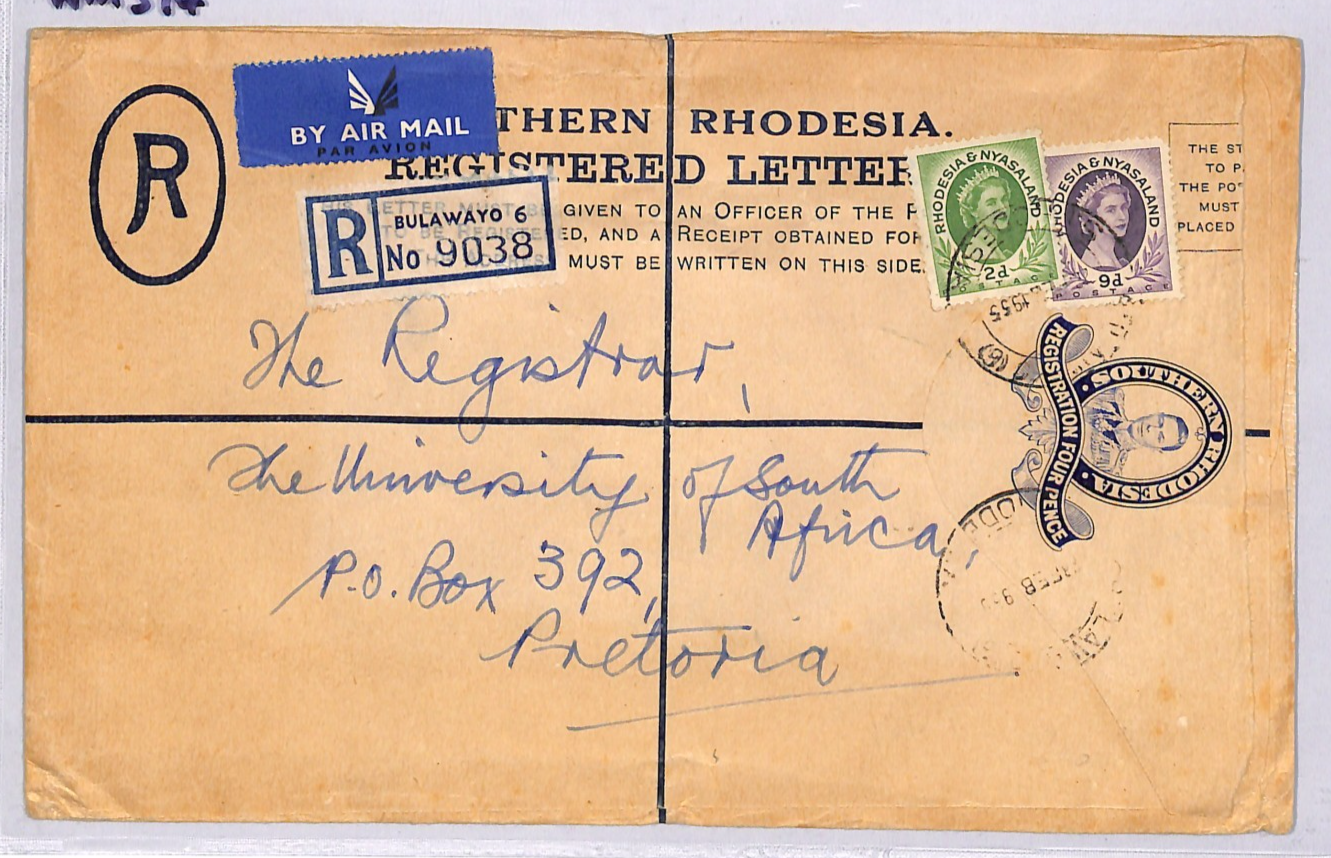 R
BY AIR MAIL
PAR AVION
THERN RHODESIA.
REGISTERED LETTER
THIS LETTER MUST BE GIVEN TO AN OFFICER OF THE P
TO BE REGISTERED, AND A RECEIPT OBTAINED FOR
MUST BE WRITTEN ON THIS SIDE.
R
BULAWAYO 6
No 9038
RHODESIA & NYASALAND
2d
POSTAGE
RHODESIA & NYASALAND
9d
POSTAGE
THE ST
TO P
THE PO
MUST
PLACED
1955
REGISTRATION FOUR PENCE
· SOUTHERN RHODESIA ·
FEB
The Registrar,
The University of South
Africa,
P.O. Box 392,
Pretoria